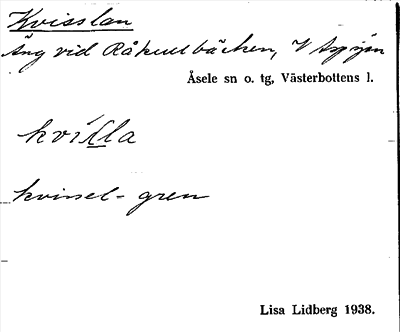 Kvisslan
Äng vid Råkullbäcken, V
Åsele sn o. tg, Västerbottens l.
kvissel- gren
Lisa Lidberg 1938.